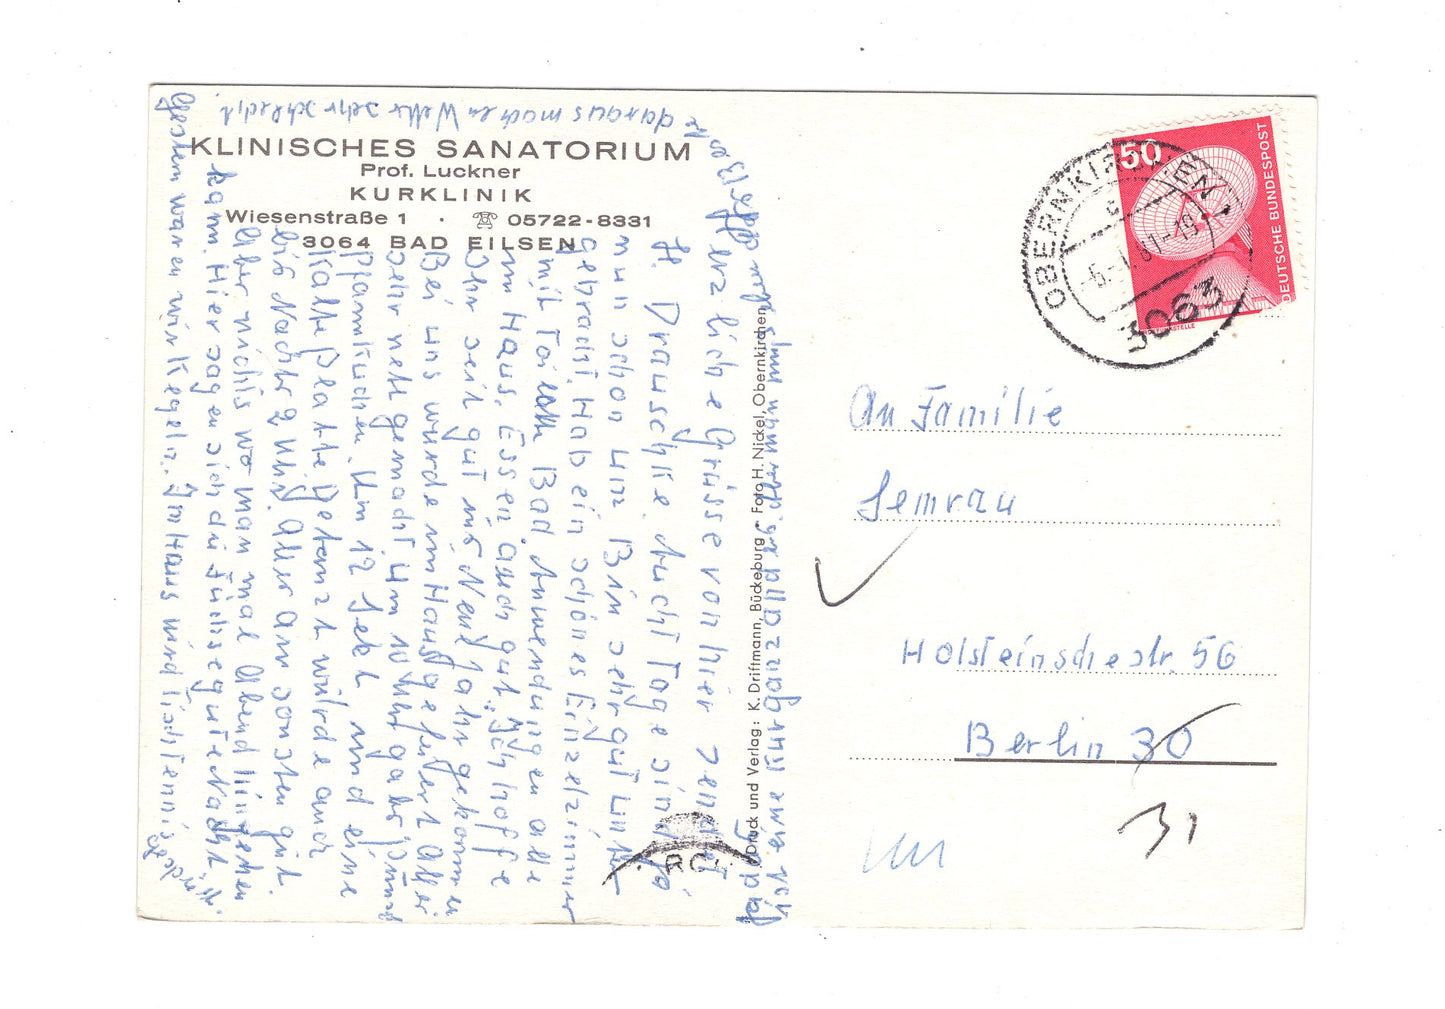 KLINISCHES SANATORIUM
Prof. Luckner
KURKLINIK
Wiesenstraße 1 · ☎ 05722-8331
3064 BAD EILSEN
Herzliche Grüsse von hier sendet
H. Drauschke. Acht Tage sind ja
nun schon um Bin sehr gut unter
gebracht. Hab ein schönes Einzelzimmer
mit Toilette Bad. Anwendungen alle
im Haus. Essen auch gut. Ich hoffe
Ihr seit gut ins Neujahr gekommen
Bei uns wurde im Haus gefeiert alles
sehr nett gemacht um 10 Uhr gabs Punsch
Pfannkuchen. Um 12 Sekt und eine
Kalte Platte Getanzt wurde auch
bis Nachts 2 Uhr. ansonsten gut.
Aber nichts wo man mal Abend hingehen
kann. Hier sagen sich die Füchse gute Nacht.
Gestern waren wir Kegeln. Im Haus wird Tischtennis
ist eine Kur ganz man muß
daraus machen Wetter sehr schlecht.
Druck und Verlag: K. Driftmann, Bückeburg · Foto H. Nickel, Obernkirchen
50
DEUTSCHE BUNDESPOST
OBERNKIRCHEN
3063
An Familie
Semrau
Holsteinschestr. 56
Berlin 30
31